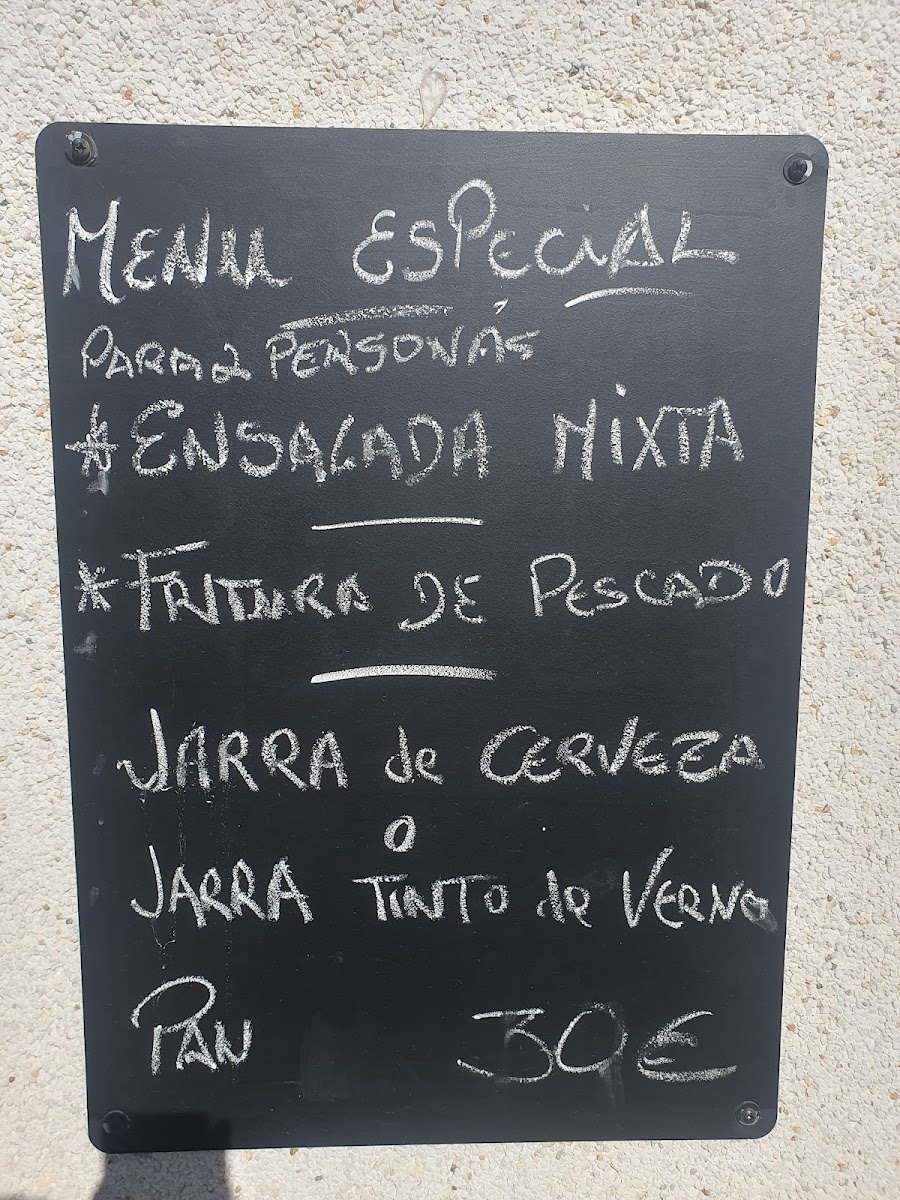 MENU ESPECIAL
PARA 2 PERSONÁS
* ENSALADA MIXTA
* FRITURA DE PESCADO
JARRA de CERVEZA
O
JARRA TINTO de VERNO
PAN 30€